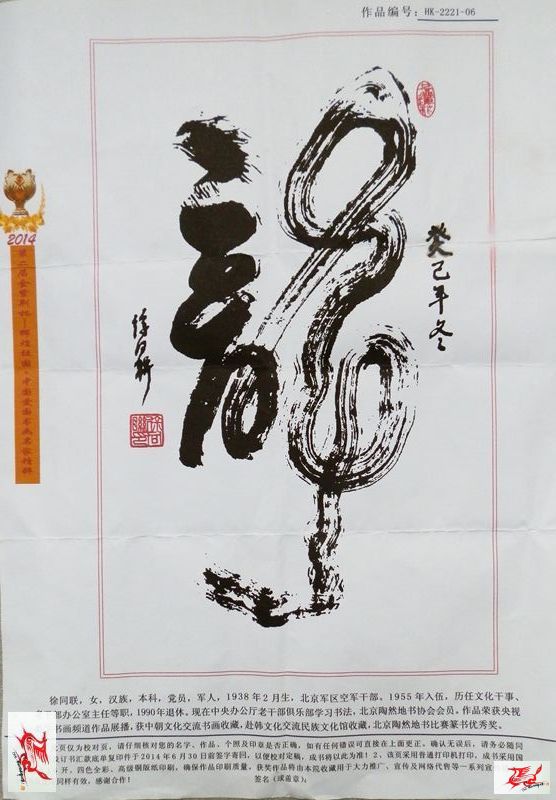 作品编号：HK-2221-06
龙
癸巳年冬
2014
徐同联，女，汉族，本科，党员，军人，1938年2月生，北京军区空军干部。1955年入伍，历任文化干事、
部办公室主任等职，1990年退休。现在中央办公厅老干部俱乐部学习书法，北京陶然地书协会会员。作品荣获央视
书画频道作品展播，获中朝文化交流书画收藏，赴韩文化交流民族文化馆收藏，北京陶然地书比赛篆书优秀奖。
页仅为校对页，请仔细核对您的名字、作品、个照及印章是否正确，如有任何错误可直接在上面更正。确认无误后，请务必随同
及订书汇款底单复印件于2014年6月30日前签字寄回，以便校对定稿，成书将以此为准！2、该页采用普通打印机打印，成书采用国
开，四色全彩、高级铜版纸印刷，确保作品印刷质量。获奖作品将由本院收藏用于大力推广、宣传及网络代售等一系列宣
同样有效。感谢合作！
签名（或盖章）：